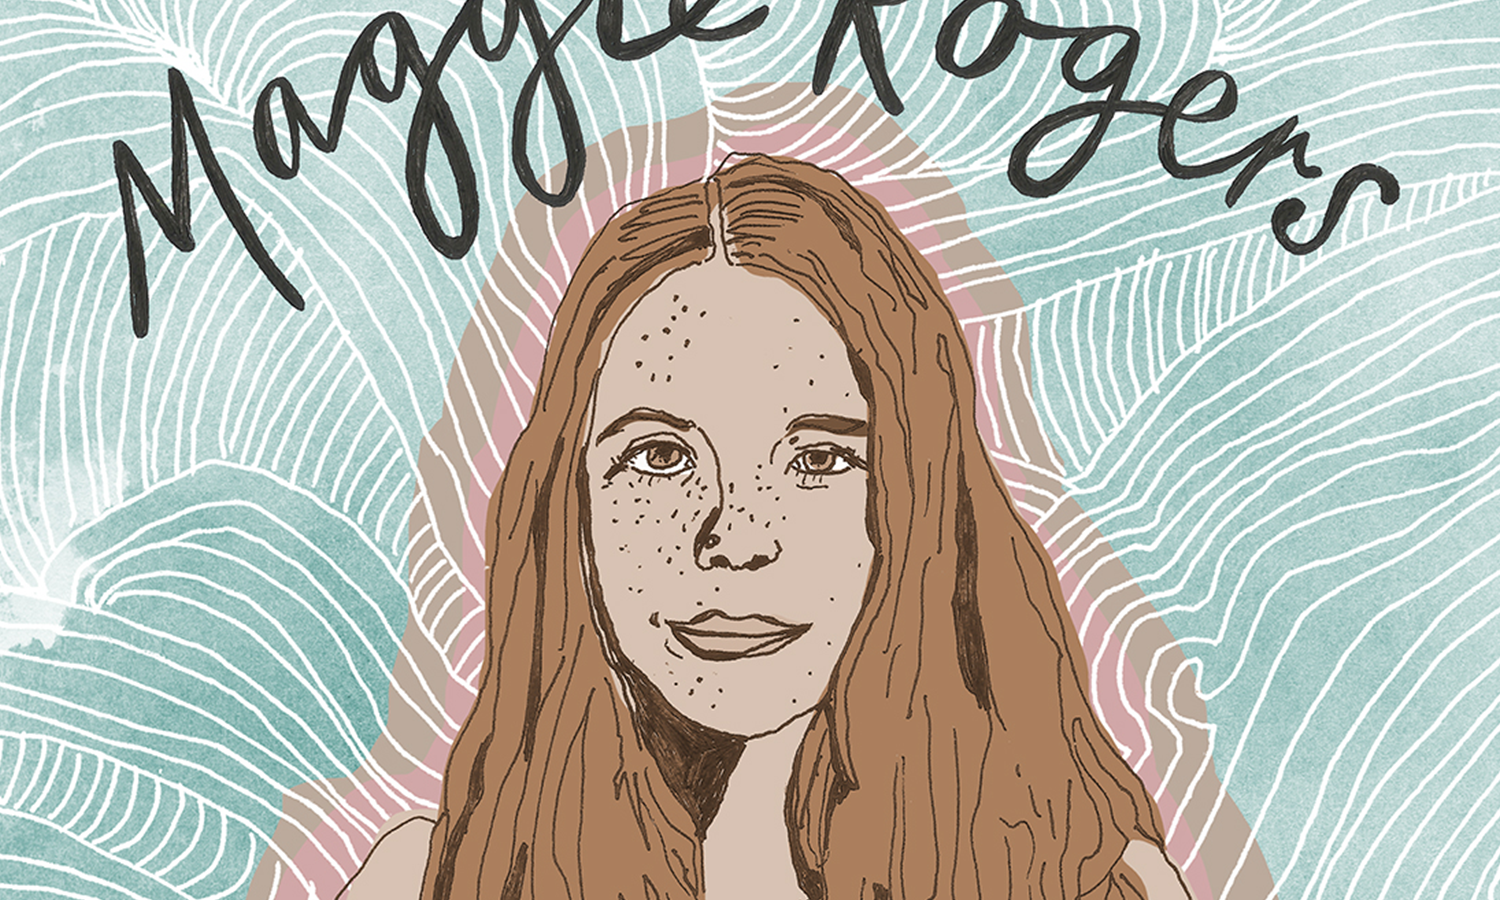 Maggie Rogers